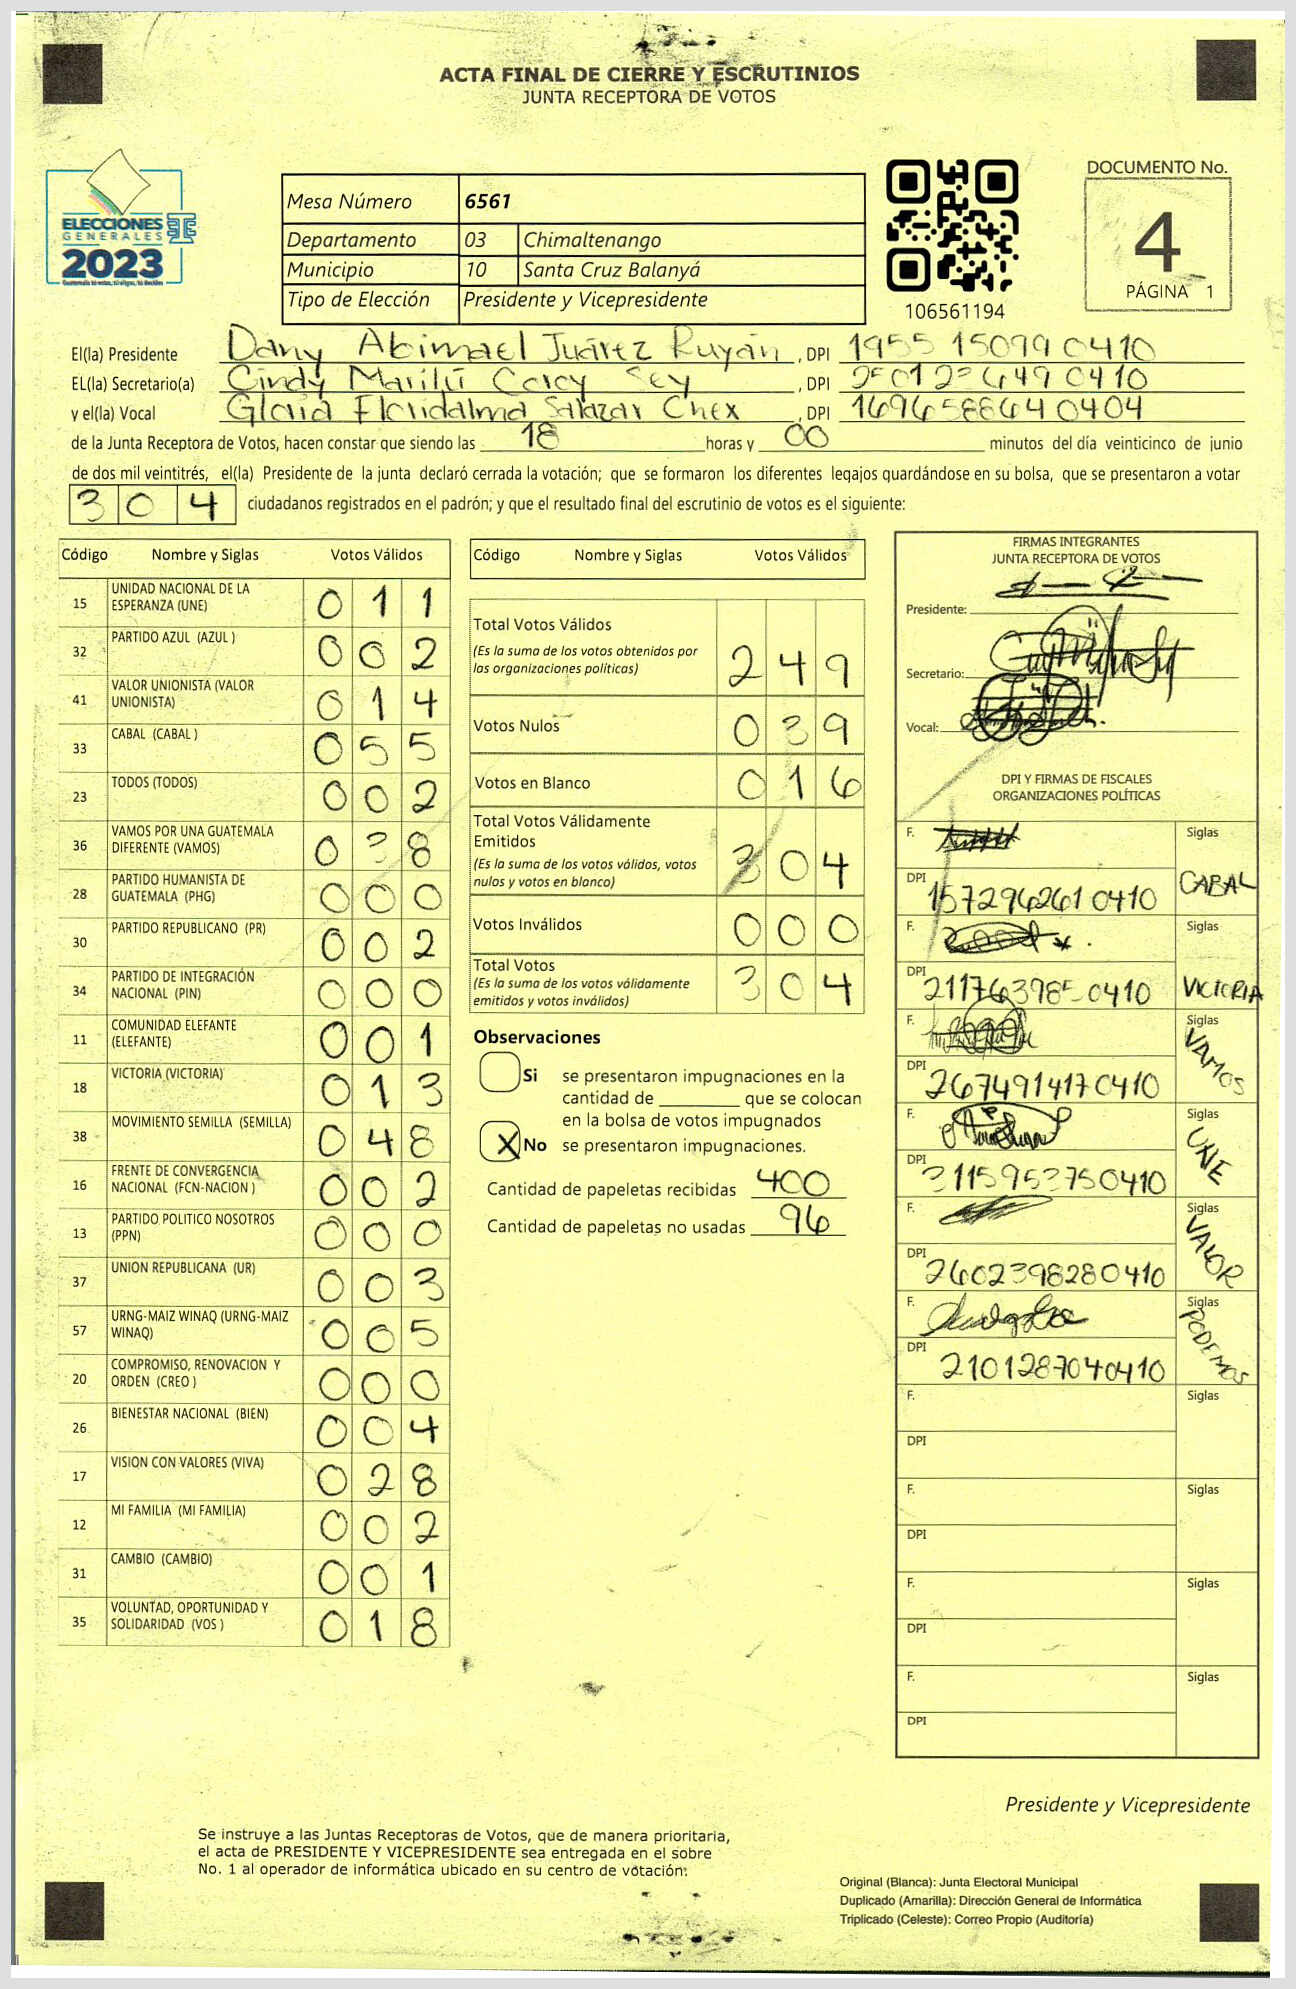 ACTA FINAL DE CIERRE Y ESCRUTINIOS
JUNTA RECEPTORA DE VOTOS
ELECCIONES
GENERALES
2023
Mesa Número 6561
Departamento 03 Chimaltenango
Municipio 10 Santa Cruz Balanyá
Tipo de Elección Presidente y Vicepresidente
106561194
DOCUMENTO No.
4
PÁGINA 1
El(la) Presidente Dany Abimael Juárez Ruyán , DPI 1955 15099 0410
EL(la) Secretario(a) Cindy Marilú Sey , DPI
y el(la) Vocal Gloria Floridalma Salazar Chex , DPI 1696588640404
de la Junta Receptora de Votos, hacen constar que siendo las 18 horas y 00 minutos del día veinticinco de junio
de dos mil veintitrés, el(la) Presidente de la junta declaró cerrada la votación; que se formaron los diferentes legajos guardándose en su bolsa, que se presentaron a votar
304 ciudadanos registrados en el padrón; y que el resultado final del escrutinio de votos es el siguiente:
Código Nombre y Siglas Votos Válidos
15 UNIDAD NACIONAL DE LA ESPERANZA (UNE) 011
32 PARTIDO AZUL (AZUL ) 002
41 VALOR UNIONISTA (VALOR UNIONISTA) 014
33 CABAL (CABAL ) 055
23 TODOS (TODOS) 002
36 VAMOS POR UNA GUATEMALA DIFERENTE (VAMOS) 038
28 PARTIDO HUMANISTA DE GUATEMALA (PHG) 000
30 PARTIDO REPUBLICANO (PR) 002
34 PARTIDO DE INTEGRACIÓN NACIONAL (PIN) 000
11 COMUNIDAD ELEFANTE (ELEFANTE) 001
18 VICTORIA (VICTORIA) 013
38 MOVIMIENTO SEMILLA (SEMILLA) 048
16 FRENTE DE CONVERGENCIA NACIONAL (FCN-NACION ) 002
13 PARTIDO POLITICO NOSOTROS (PPN) 000
37 UNION REPUBLICANA (UR) 003
57 URNG-MAIZ WINAQ (URNG-MAIZ WINAQ) 005
20 COMPROMISO, RENOVACION Y ORDEN (CREO ) 000
26 BIENESTAR NACIONAL (BIEN) 004
17 VISION CON VALORES (VIVA) 028
12 MI FAMILIA (MI FAMILIA) 002
31 CAMBIO (CAMBIO) 001
35 VOLUNTAD, OPORTUNIDAD Y SOLIDARIDAD (VOS ) 018
Código Nombre y Siglas Votos Válidos
Total Votos Válidos 249
(Es la suma de los votos obtenidos por
las organizaciones políticas)
Votos Nulos 039
Votos en Blanco 016
Total Votos Válidamente
Emitidos 304
(Es la suma de los votos válidos, votos
nulos y votos en blanco)
Votos Inválidos 000
Total Votos 304
(Es la suma de los votos válidamente
emitidos y votos inválidos)
Observaciones
Si se presentaron impugnaciones en la
cantidad de ________ que se colocan
en la bolsa de votos impugnados
X No se presentaron impugnaciones.
Cantidad de papeletas recibidas 400
Cantidad de papeletas no usadas 96
FIRMAS INTEGRANTES
JUNTA RECEPTORA DE VOTOS
Presidente:
Secretario:
Vocal:
DPI Y FIRMAS DE FISCALES
ORGANIZACIONES POLÍTICAS
F. Siglas
DPI 1572962610410 CABAL
F. Siglas
DPI 2117639850410 VICTORIA
F. Siglas
DPI 2674914170410 VAMOS
F. Siglas
DPI 3115953750410 UNE
F. Siglas
DPI 2602398280410 VALOR
F. Siglas
DPI 2101287040410 PODEMOS
F. Siglas
DPI
F. Siglas
DPI
F. Siglas
DPI
F. Siglas
DPI
Presidente y Vicepresidente
Se instruye a las Juntas Receptoras de Votos, que de manera prioritaria,
el acta de PRESIDENTE Y VICEPRESIDENTE sea entregada en el sobre
No. 1 al operador de informática ubicado en su centro de votación.
Original (Blanca): Junta Electoral Municipal
Duplicado (Amarilla): Dirección General de Informática
Triplicado (Celeste): Correo Propio (Auditoría)